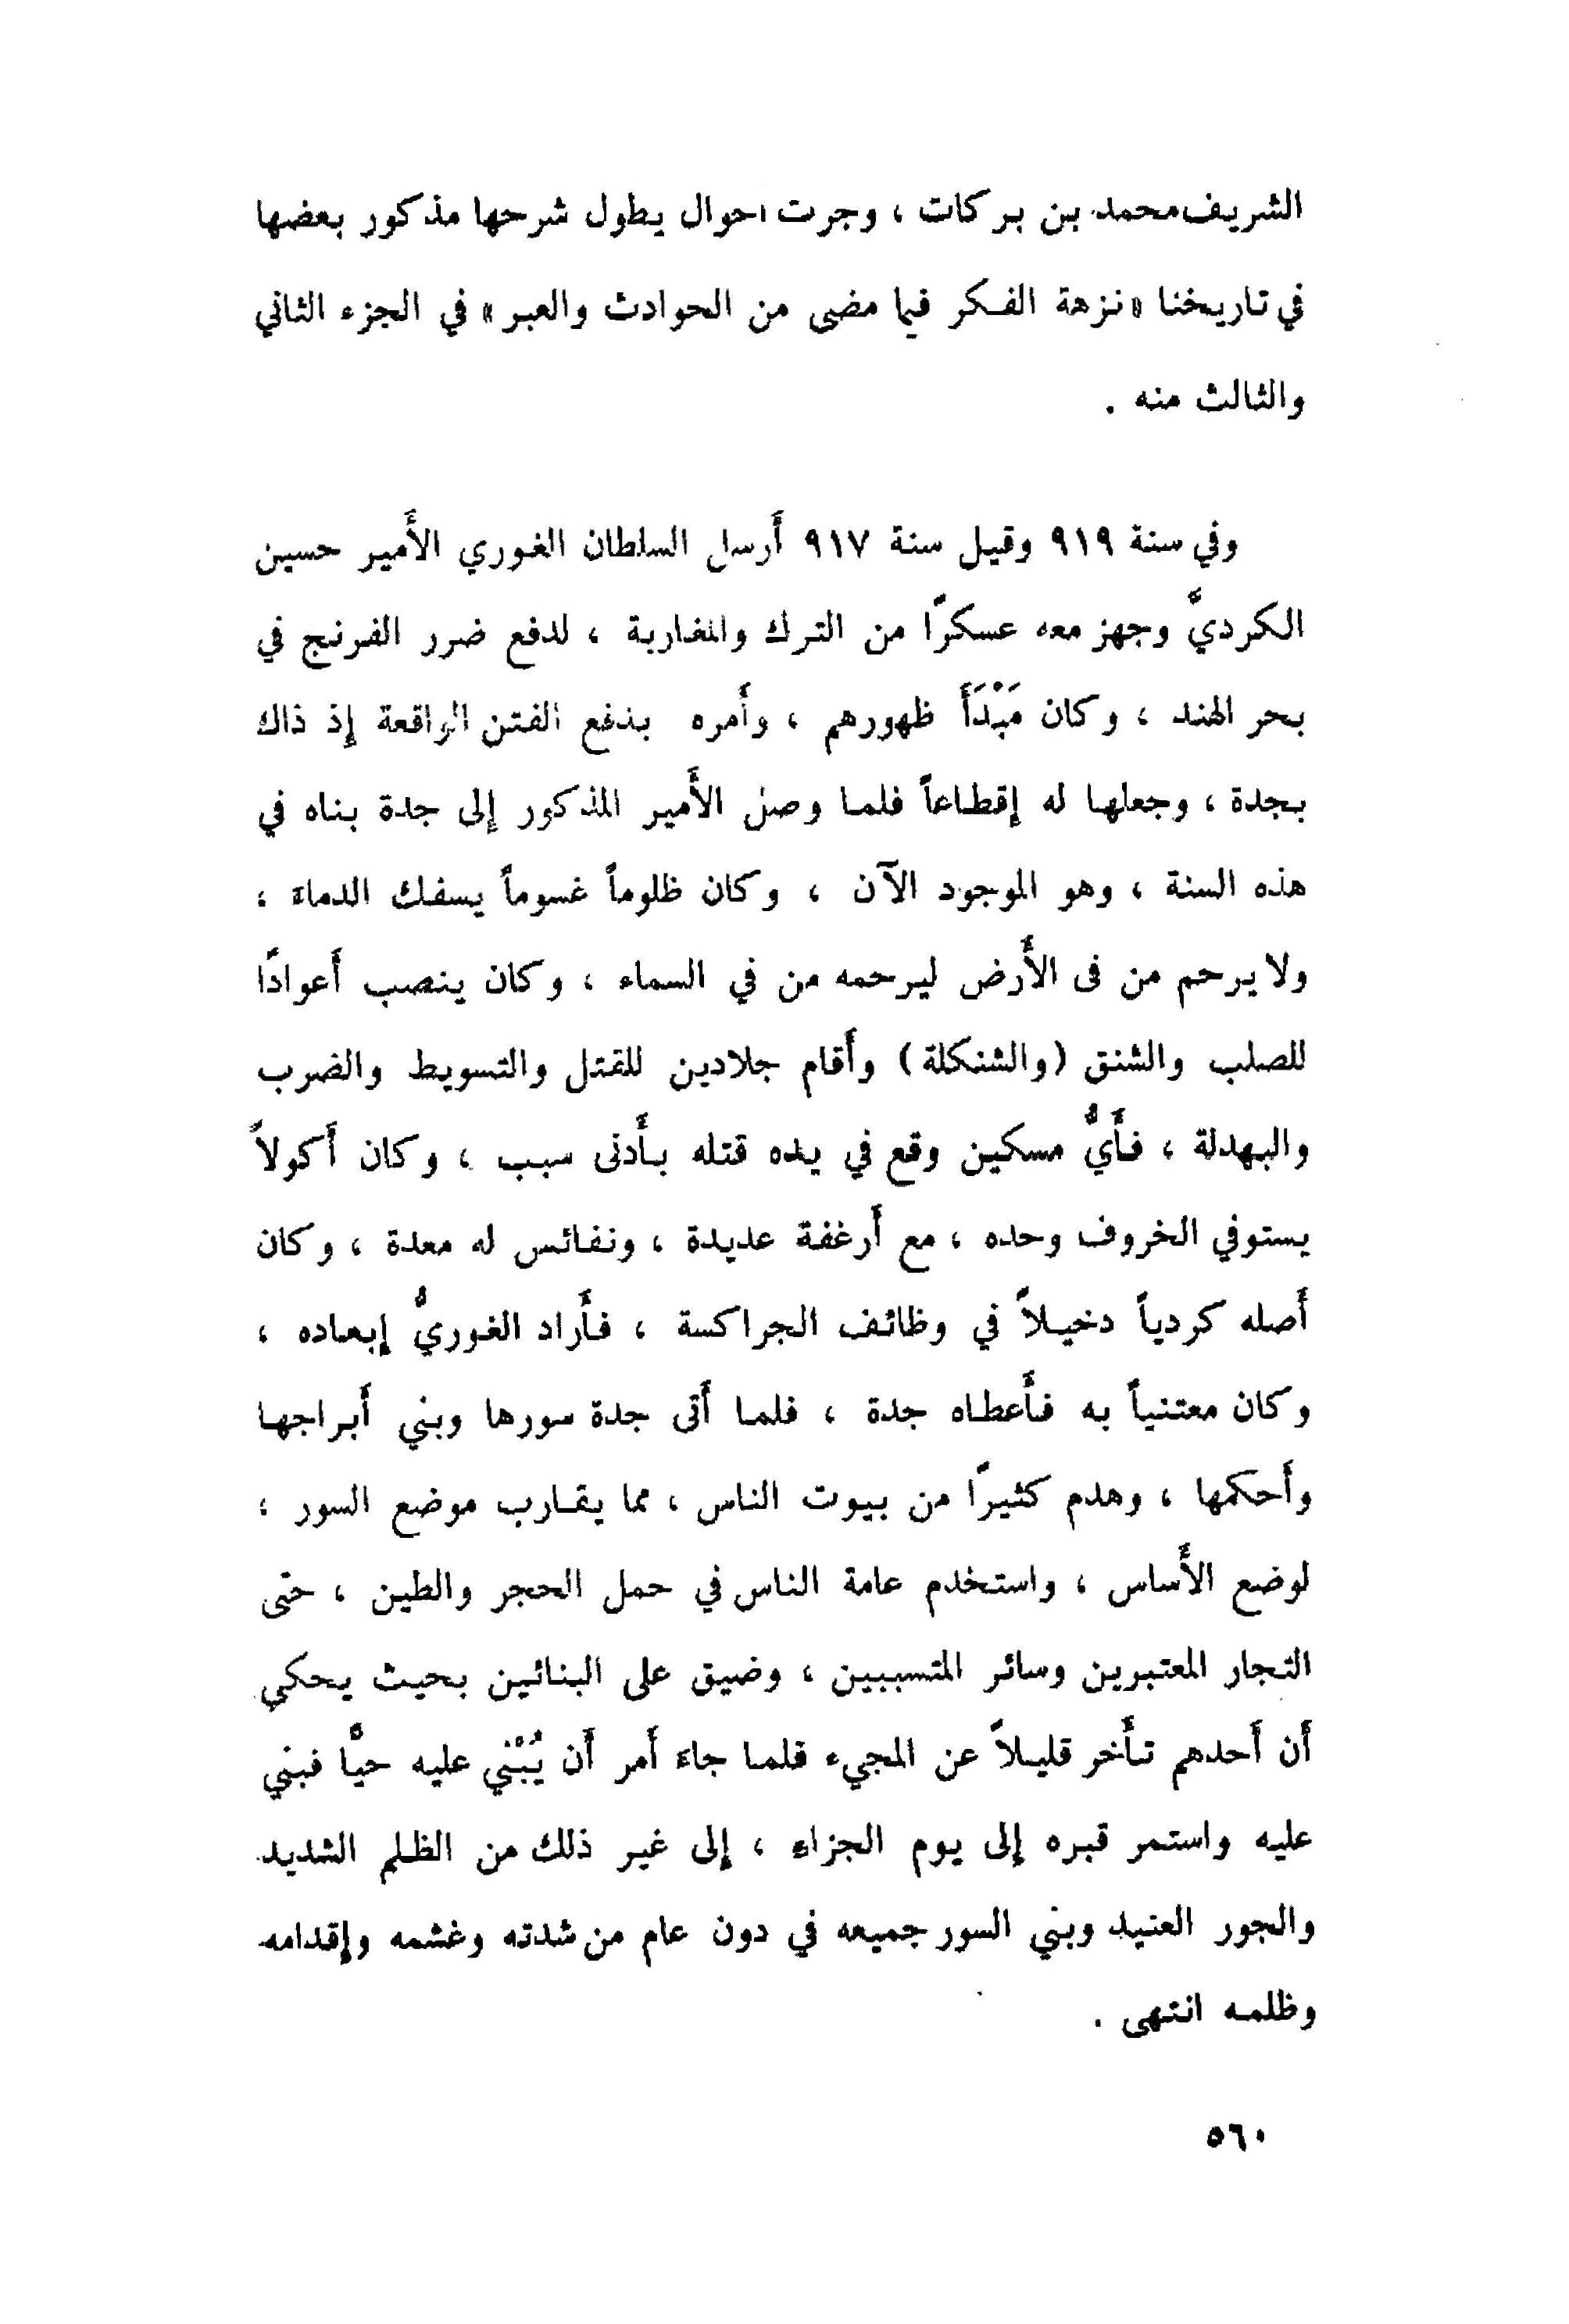 الشريف محمد بن بركات ، وجرت احوال يطول شرحها مذكور بعضها
في تاريخنا « نزهة الفكر فيما مضى من الحوادث والعبر » في الجزء الثاني
والثالث منه .
وفي سنة ٩١٩ وقيل سنة ٩١٧ أَرسل السلطان الغوري الأَمير حسين
الكرديَّ وجهز معه عسكرًا من الترك والمغاربة ، لدفع ضرر الفرنج في
بحر الهند ، وكان مَبْدَأَ ظهورهم ، وأَمره بدفع الفتن الواقعة إذ ذاك
بجدة ، وجعلها له إقطاعاً فلما وصل الأَمير المذكور إلى جدة بناه في
هذه السنة ، وهو الموجود الآن ، وكان ظلوماً غسوماً يسفك الدماءَ ،
ولا يرحم من فى الأَرض ليرحمه من في السماء ، وكان ينصب أَعوادًا
للصلب والشنق (والشنكلة) وأَقام جلادين للقتل والتسويط والضرب
والبهدلة ، فأَيُّ مسكين وقع في يده قتله بأَدنى سبب ، وكان أَكولاً
يستوفي الخروف وحده ، مع أَرغفة عديدة ، ونفائس له معدة ، وكان
أَصله كردياً دخيلاً في وظائف الجراكسة ، فأَراد الغوريُّ إبعاده ،
وكان معتنياً به فأَعطاه جدة ، فلما أَتى جدة سورها وبني أَبراجها
وأَحكمها ، وهدم كثيرًا من بيوت الناس ، مما يقارب موضع السور ،
لوضع الأَساس ، واستخدم عامة الناس في حمل الحجر والطين ، حتى
التجار المعتبرين وسائر المتسببين ، وضيق على البنائين بحيث يحكي
أَن أَحدهم تأَخر قليلاً عن المجيء فلما جاءَ أَمر أَن يُبْني عليه حيًّا فبني
عليه واستمر قبره إلى يوم الجزاءِ ، إلى غير ذلك من الظلم الشديد
والجور العنيد وبني السور جميعه في دون عام من شدته وغشمه وإقدامه
وظلمه انتهى .
٥٦٠